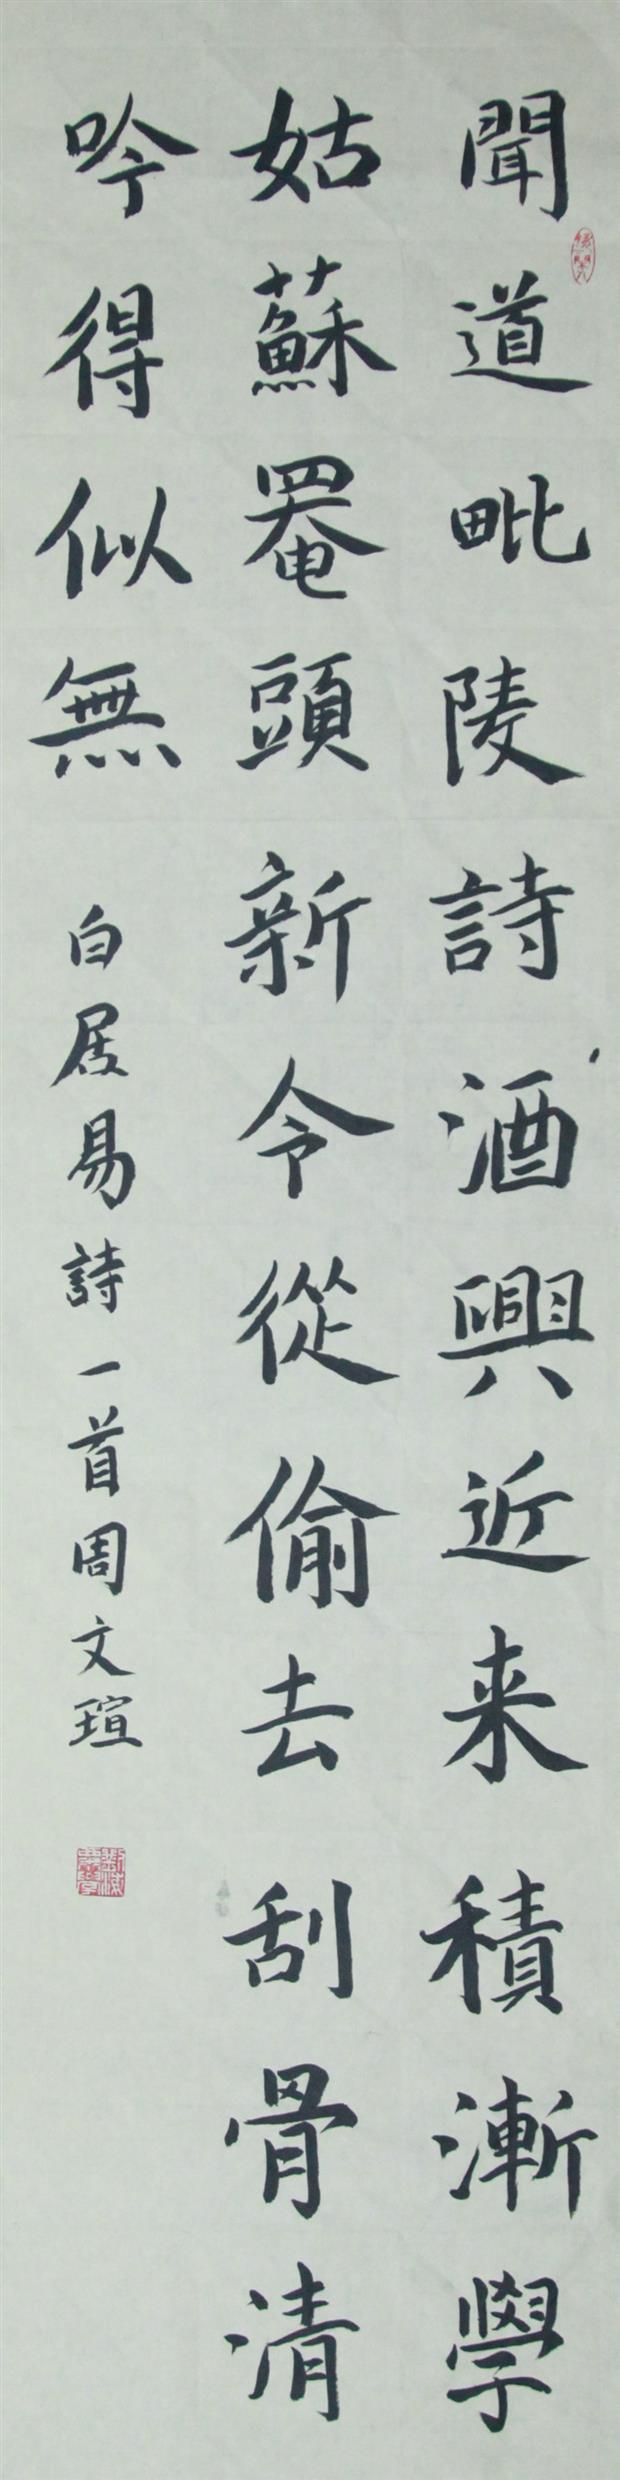 聞道毗陵詩酒興近来積漸學
姑蘇罨頭新令從偷去刮骨清
吟得似無
白居易詩一首周文瑄